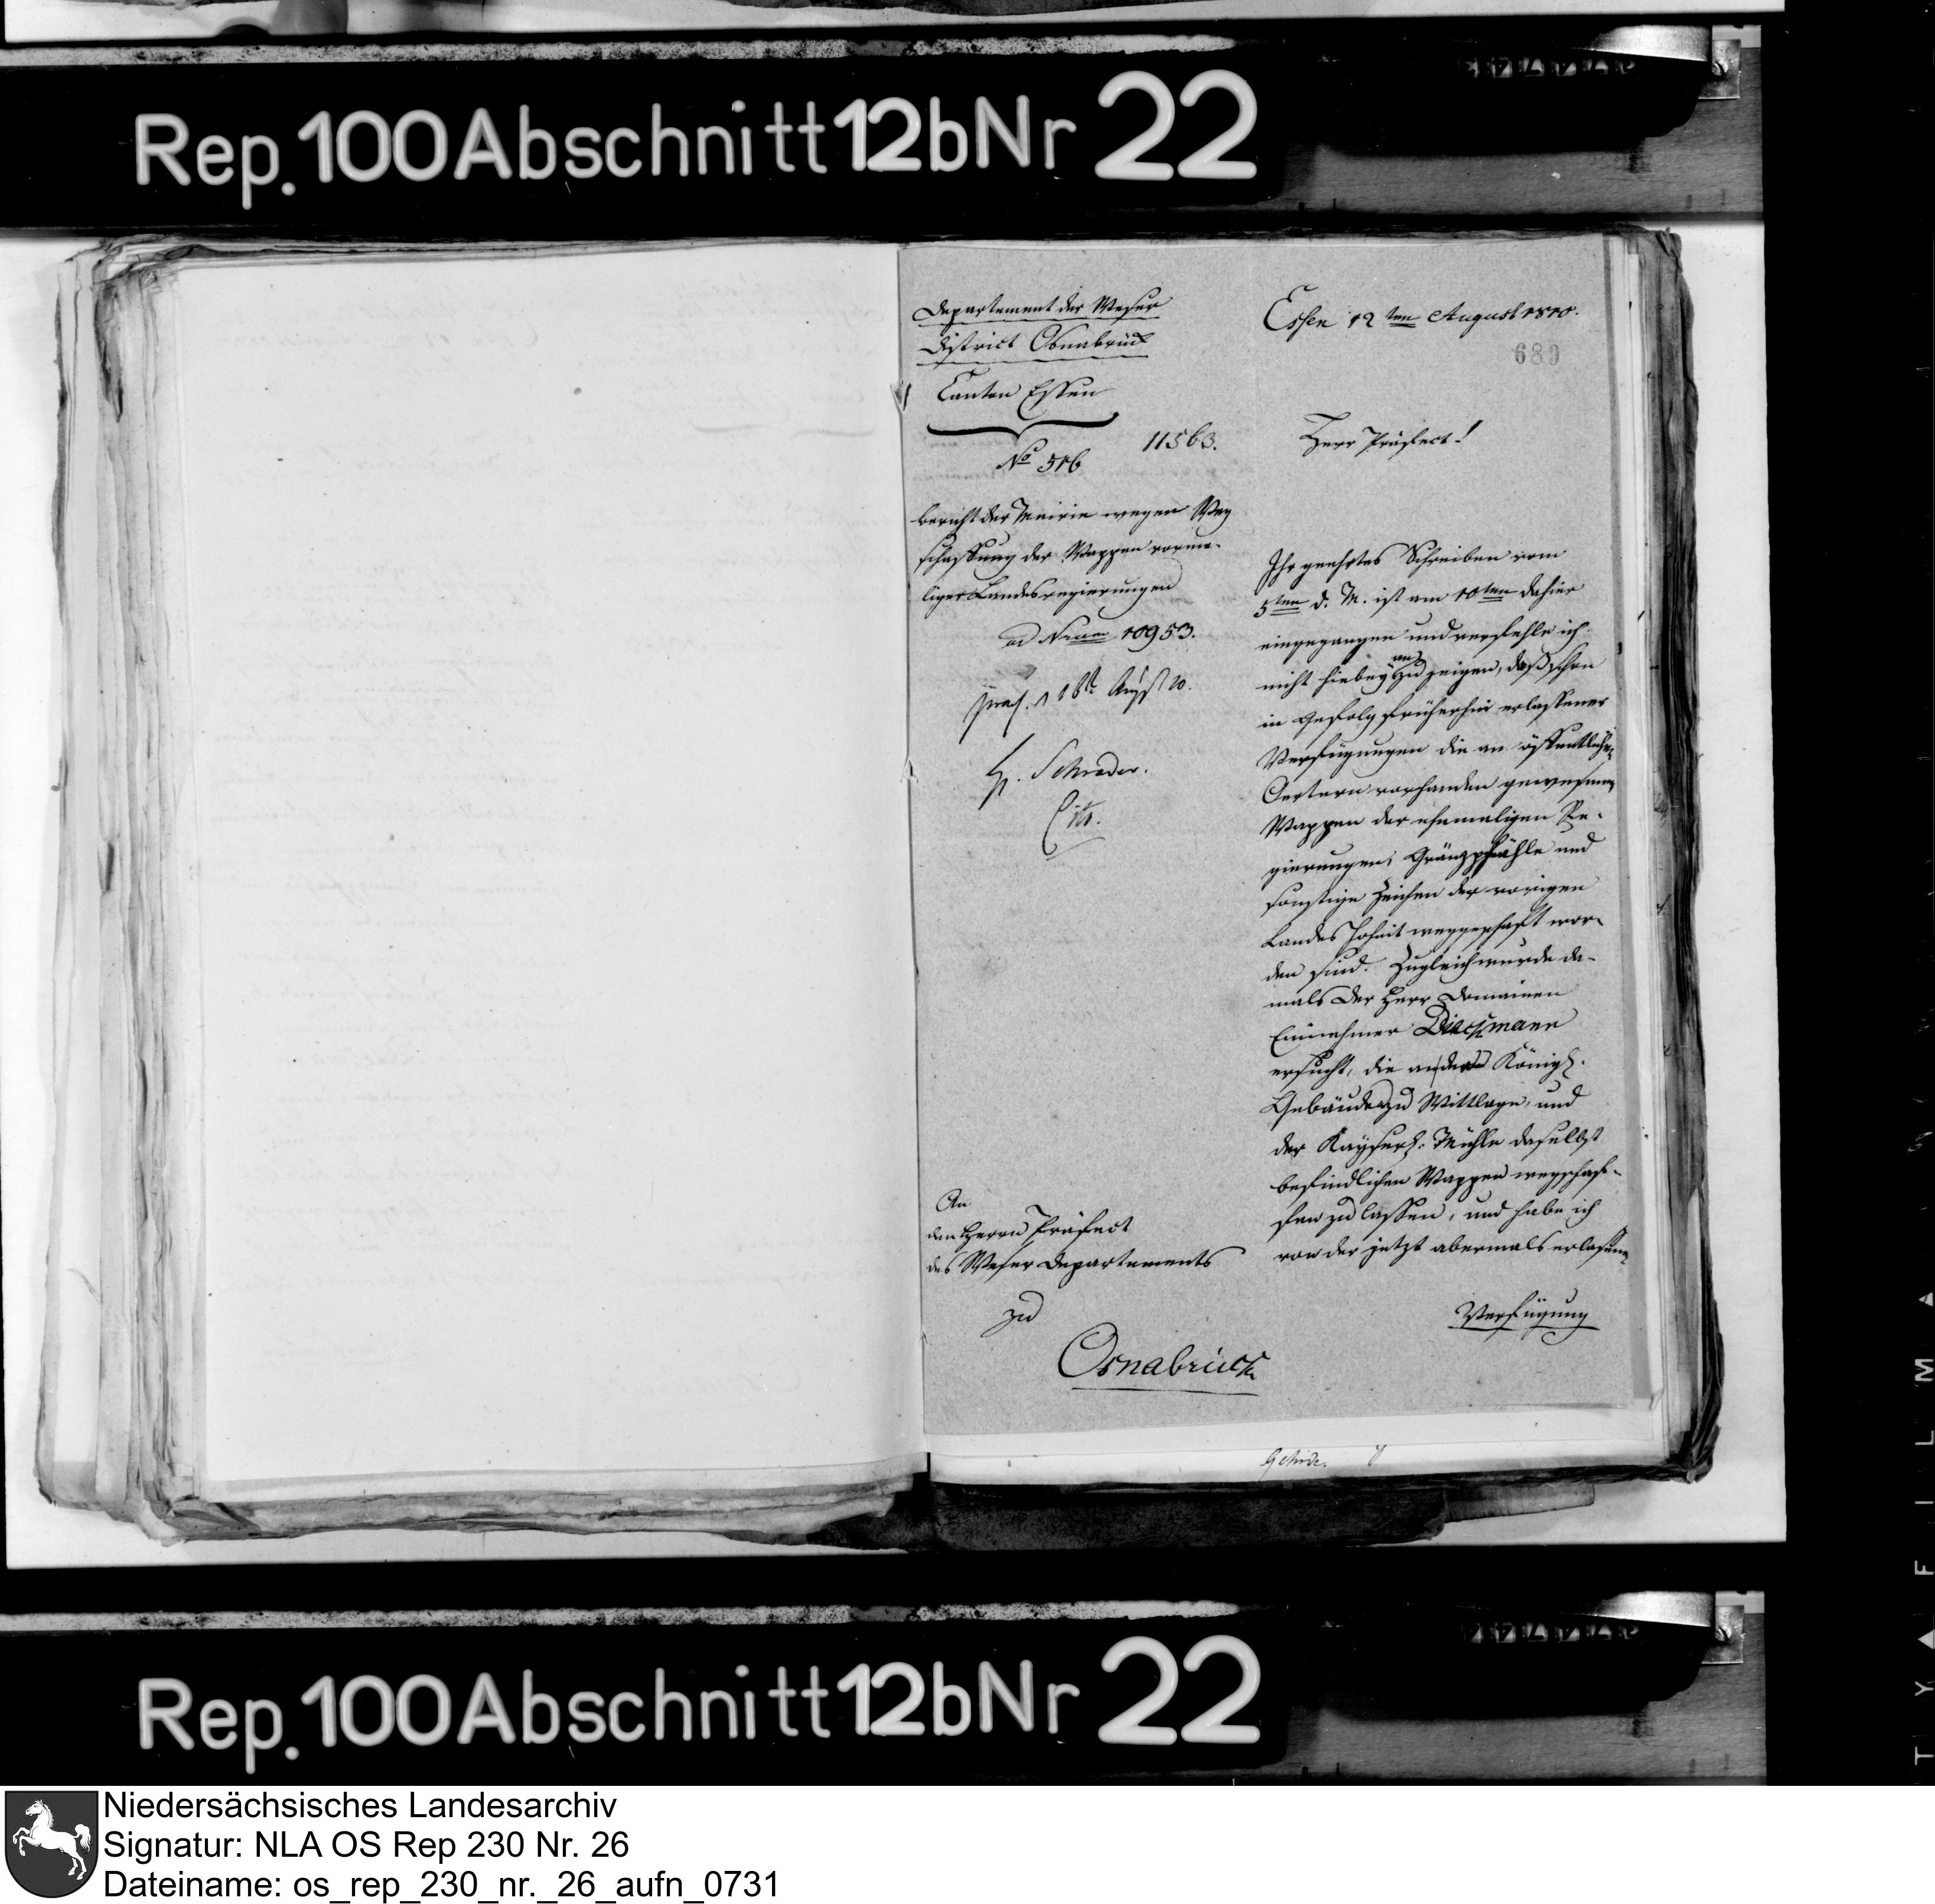 Rep. 100 Abschnitt 12b Nr 22
Departement der Weser
District Osnabrück
Canton Essen
No 516
11563.
Bericht der Mairie wegen Weg
schaffung der Wappen vorma-
liger Landesregierungen
ad Num 10953.
praes. 18t August 10.
H. Schrader.
Cito.
An
den Herrn Präfect
des Weser Departements
zu
Osnabrück
Essen 12ten August 1810.
689
Herr Präfect!
Ihr geehrtes Schreiben vom
5ten d. M. ist am 10ten dahier
eingegangen und verfehle ich
nicht hiebey anzuzeigen, daß schon
in Gefolg früherhin erlassener
Verfügungen die an öffentlichen
Oertern vorhanden gewesenen
Wappen der ehemaligen Re-
gierungen, Gränzpfähle und
sonstige Zeichen der vorigen
Landes Hoheit weggeschaft wor-
den sind. Zugleich wurde da-
mals der Herr Domainen
Einnehmer Dieckmann
ersucht, die an den Königl.
Gebäude zu Wittlage, und
der Kayserl. Mühle daselbst
befindlichen Wappen wegschaf-
fen zu lassen, und habe ich
von der jetzt abermals erlassenen
Verfügung
Rep. 100 Abschnitt 12b Nr 22
Niedersächsisches Landesarchiv
Signatur: NLA OS Rep 230 Nr. 26
Dateiname: os_rep_230_nr._26_aufn_0731